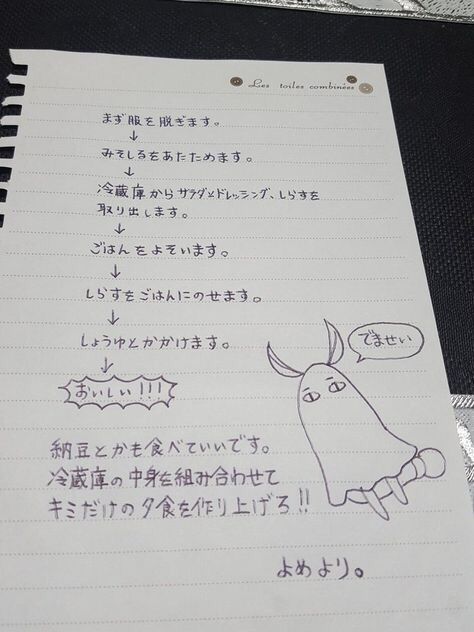 Les toiles combinées
まず服を脱ぎます。
↓
みそしるをあたためます。
↓
冷蔵庫からサラダとドレッシング、しらすを
取り出します。
↓
ごはんをよそいます。
↓
しらすをごはんにのせます。
↓
しょうゆとかかけます。
↓
おいしい!!!
でませい
納豆とかも食べていいです。
冷蔵庫の中身を組み合わせて
キミだけの夕食を作り上げろ!!
よめより。